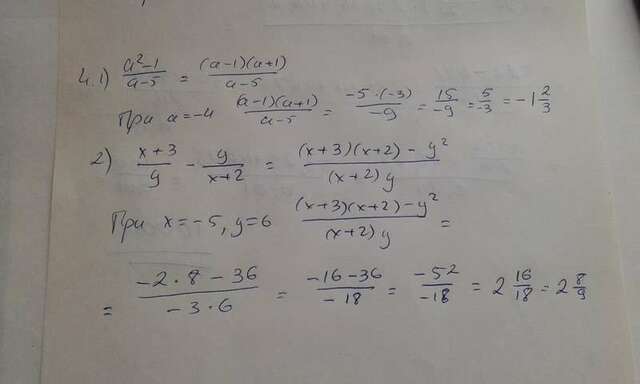 4.1) (a²-1)/(a-5) = ((a-1)(a+1))/(a-5)
При a=-4 ((a-1)(a+1))/(a-5) = (-5·(-3))/(-9) = 15/(-9) = 5/(-3) = -1 2/3
2) (x+3)/y - y/(x+2) = ((x+3)(x+2)-y²)/((x+2)y)
При x=-5, y=6 ((x+3)(x+2)-y²)/((x+2)y) =
= (-2·8-36)/(-3·6) = (-16-36)/(-18) = (-52)/(-18) = 2 16/18 = 2 8/9